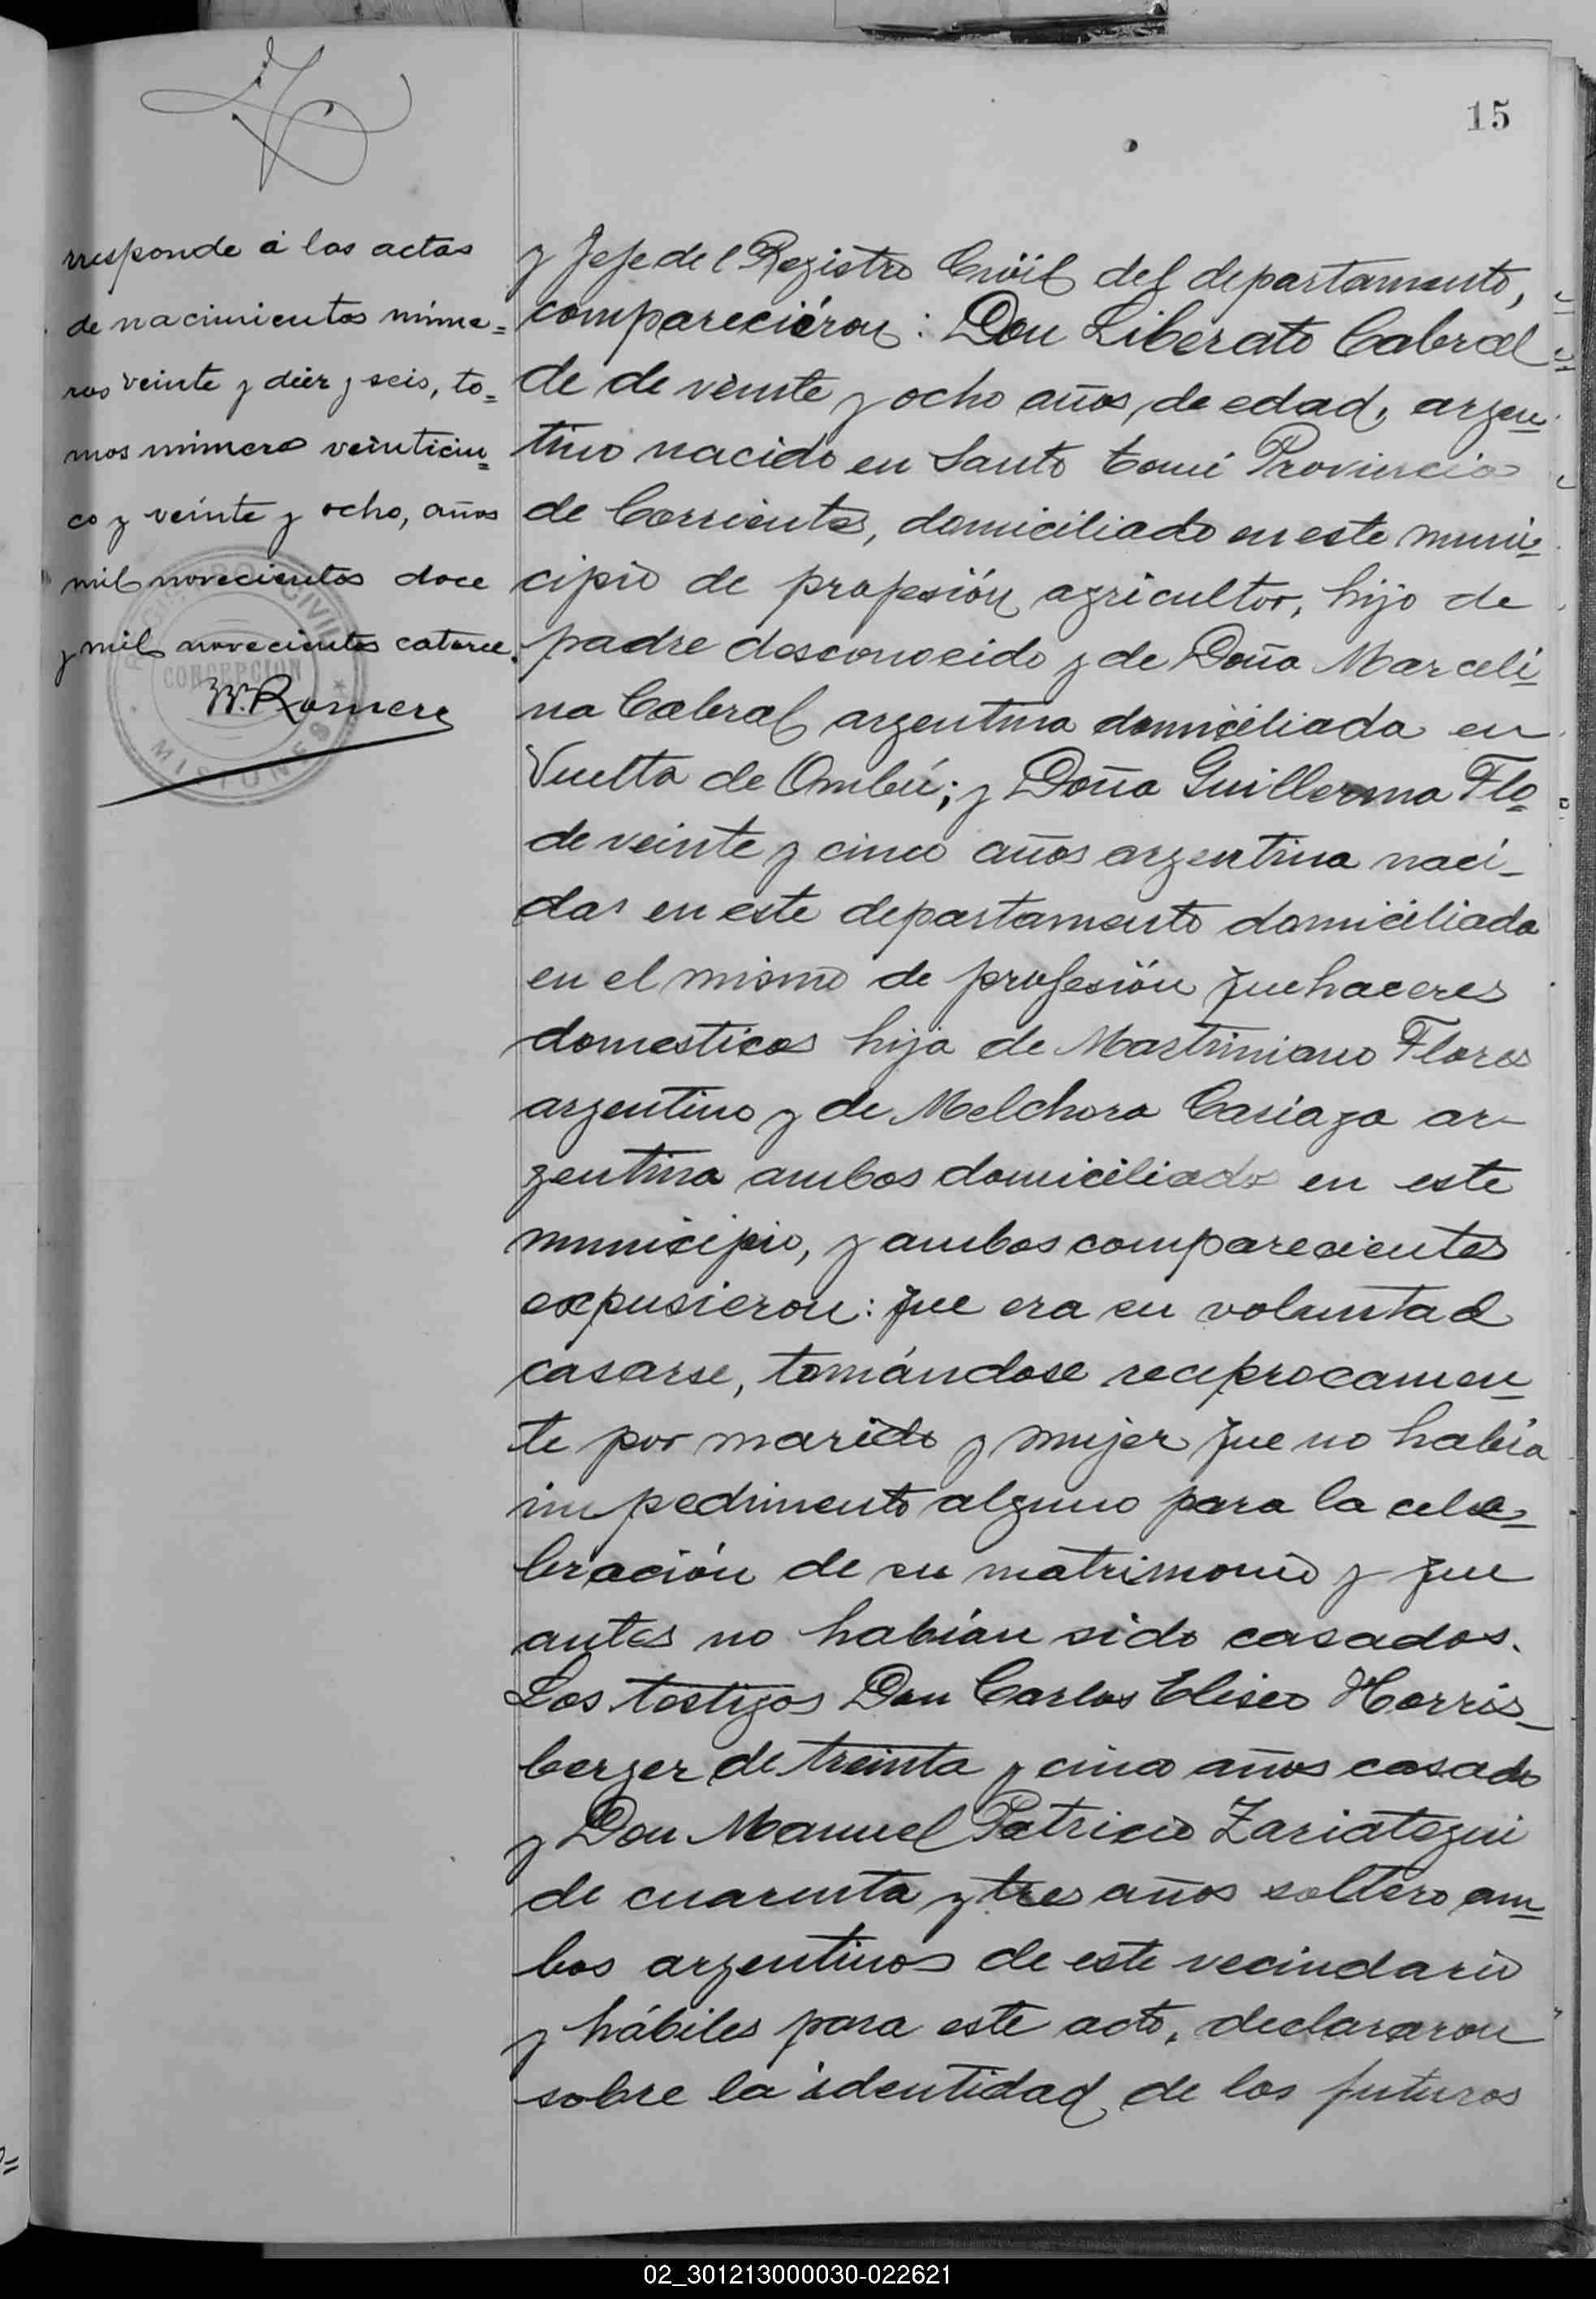 15
rresponde á las actas
de nacimientos núme=
ros veinte y diez y seis, to=
mos número veinticin=
co y veinte y ocho, años
mil novecientos doce
y mil novecientos catorce.
REGISTRO CIVIL
CONCEPCION
MISIONES
W. Romero
y Jefe del Registro Civil del departamento,
comparecieron: Don Liberato Cabral
de de veinte y ocho años, de edad, argen=
tino nacido en Santo tomé Provincia
de Corrientes, domiciliado en este muni=
cipio de profesión agricultor, hijo de
padre desconocido y de Doña Marceli=
na Cabral argentina domiciliada en
Vuelta de Ombú; y Doña Guillerma Flo=
de veinte y cinco años argentina naci-
da en este departamento domiciliada
en el mismo de profesión quehaceres
domesticos hija de Mastriniano Flores
argentino y de Melchora Cariaga ar-
gentina ambos domiciliados en este
municipio, y ambos comparecientes
expusieron: que era su voluntad
casarse, tomándose reciprocamen=
te por marido y mujer que no había
impedimento alguno para la cele=
bración de su matrimonio y que
antes no habían sido casados.
Los testigos Don Carlos Eliseo Horris-
berger de treinta y cinco años casado
y Don Manuel Patricio Zariategui
de cuarenta y tres años soltero am=
bos argentinos de este vecindario
y hábiles para este acto, declararon
sobre la identidad de los futuros
02_301213000030-022621